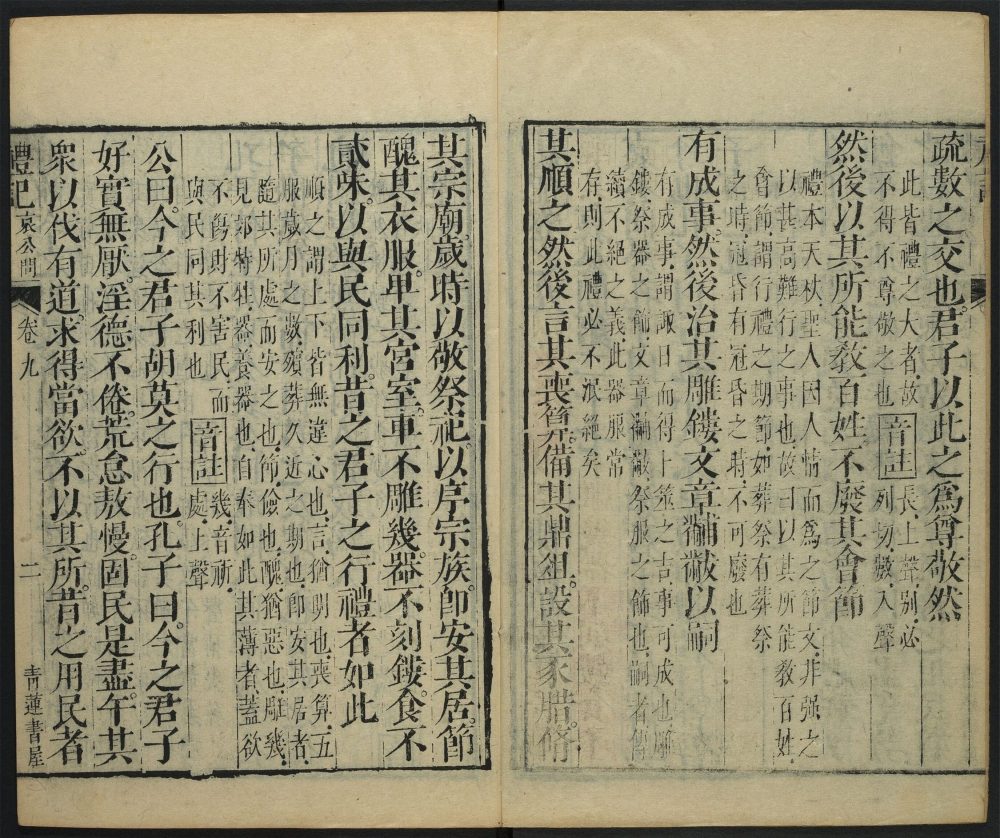 疏數之交也君子以此之爲尊敬然
此皆禮之大者故
不得不尊敬之也
音註
長上聲別必
列切數入聲
然後以其所能教百姓不廢其會節
禮本天秩聖人因人情而爲之節文非强之
以甚高難行之事也故曰以其所能教百姓
會節謂行禮之期節如葬祭有葬祭
之時冠昏有冠昏之時不可廢也
有成事然後治其雕鏤文章黼黻以嗣
有成事謂諏日而得卜筮之吉事可成也雕
鏤祭器之飾文章黼黻祭服之飾也嗣者傳
續不絕之義此器服常
存則此禮必不泯絕矣
其順之然後言其喪筭備其鼎俎設其豕腊脩
其宗廟歲時以敬祭祀以序宗族卽安其居節
醜其衣服卑其宮室車不雕幾器不刻鏤食不
貳味以與民同利昔之君子之行禮者如此
順之謂上下皆無違心也言猶明也喪算五
服歲月之數殯葬久近之期也卽安其居者
隨其所處而安之也節儉也醜猶惡也雕幾
見郊特牲器養器也自奉如此其薄者蓋欲
不傷財不害民而
與民同其利也
音註
幾音祈
處上聲
公曰今之君子胡莫之行也孔子曰今之君子
好實無厭淫德不倦荒怠敖慢固民是盡午其
衆以伐有道求得當欲不以其所昔之用民者
禮記
哀公問
卷九
二
青蓮書屋